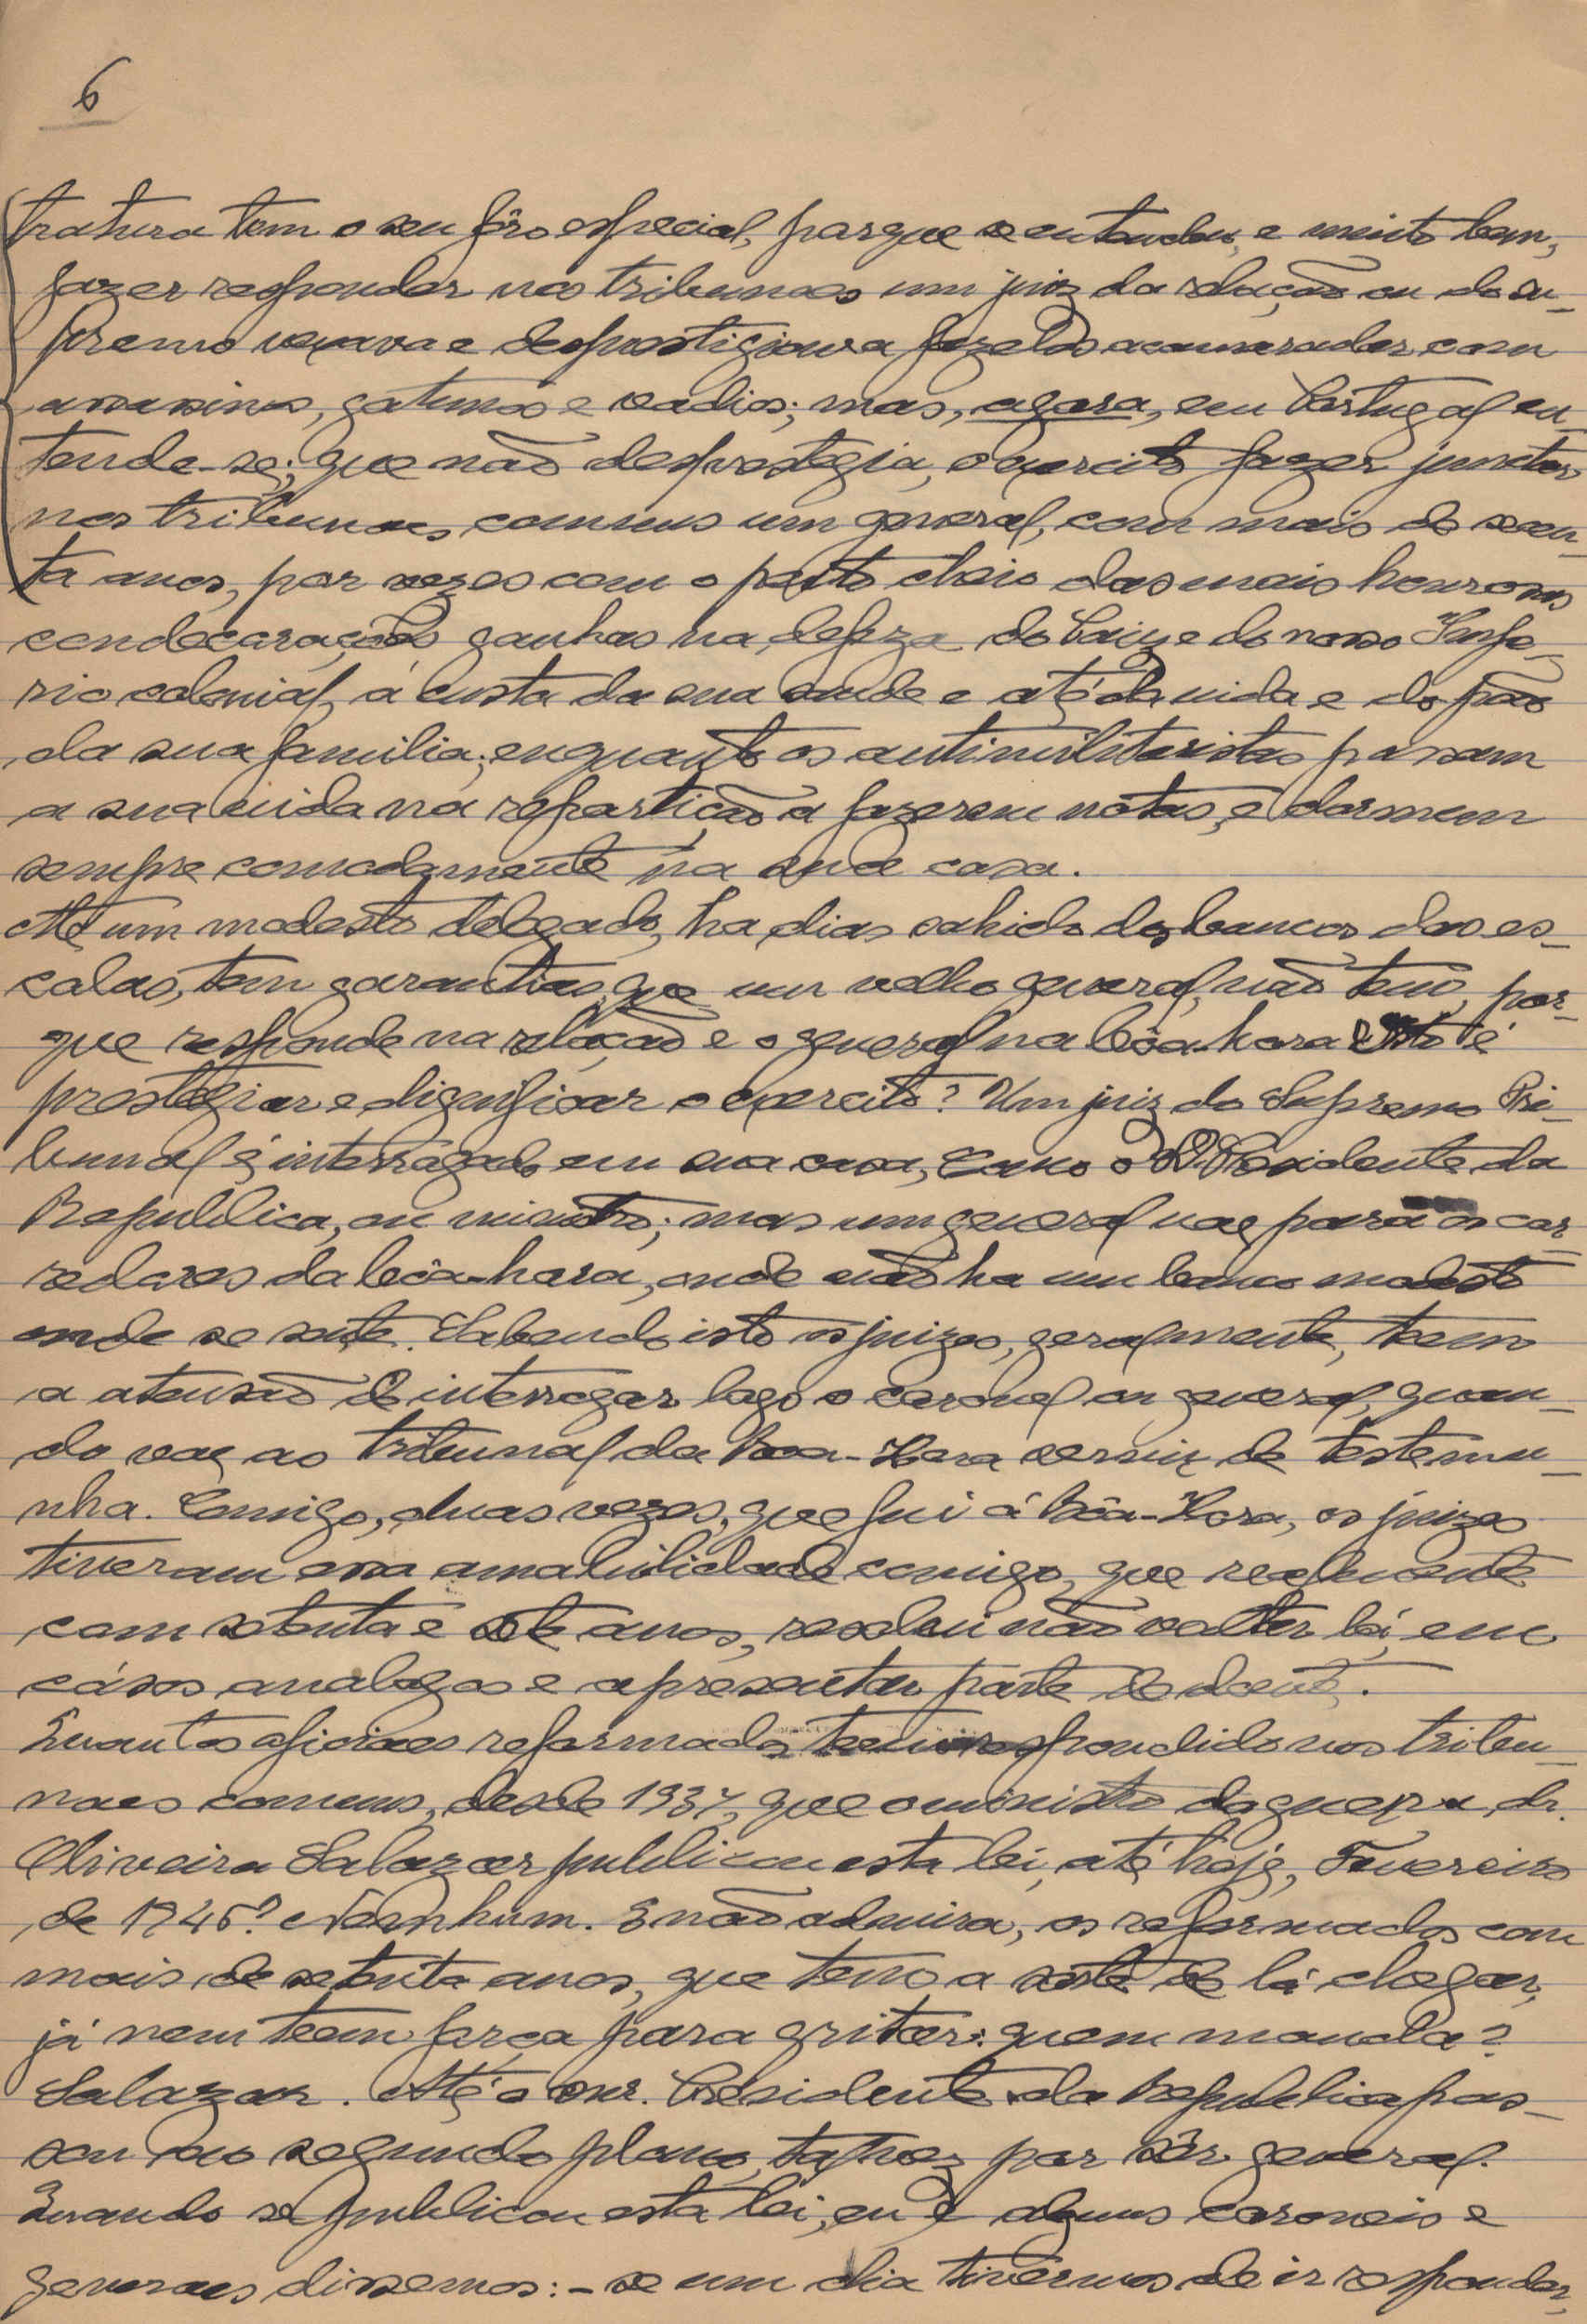 6
tratura tem o seu fôro especial, porque se entendeu, e muito bem,
fazer responder nos tribunaes um juiz da relação ou do su-
premo vexava e desprestigiava fazel-os acamaradar com
assassinos, gatunos e vadios; mas, agora, em Portugal en-
tende-se; que não desprestigia, o exercito fazer
nos tribunaes communs um general, com mais de sesen-
ta anos, por vezes com o peito cheio das mais honrosas
condecorações ganhas na defeza do Paiz e do nosso Impe-
rio colonial, á custa da sua saude e até da vida e do pão
da sua familia; enquanto os antimilitaristas passam
a sua vida na repartição a fazerem nótas, e dormem
sempre comodamente na sua casa.
Até um modesto delegado, ha dias sahido dos bancos das es-
colas, tem garantias que um velho general, não tem, por-
que responde na relação e o general na bôa-hora. Isto é
prestigiar e dignificar o exercito? Um juiz do Supremo Tri-
bunal é interrogado em sua casa, como o Presidente da
Republica, ou ministro; mas um general vae para os cor-
redores da bôa-hora, onde não ha um banco modesto
onde se sente. Sabendo isto os juizes, geralmente, teem
a atensão de interrogar logo o coronel ou general, quan-
do vae ao tribunal da Boa-Hora servir de testemu-
nha. Comigo, duas vezes, que fui á Bôa-Hora, os juizes
tiveram essa amabilidade comigo, que realmente
com setenta e sete anos, resolvi não voltar lá, em
cásos analogos e apresentar parte de doente.
Quantos oficiaes reformados teem respondido nos tribu-
naes comuns, desde 1937, que o ministro da guerra, dr.
Oliveira Salazar publicou esta lei, até hoje, Fevereiro
de 1946? Nenhum. E não admira, os reformados com
mais de setenta anos, que teem a sorte de lá chegar,
já nem teem força para gritar: quem manda?
Salazar. Até o snr. Presidente da Republica pas-
sou ao segundo plano, talvez por sêr general.
Quando se publicou esta lei, eu e alguns coroneis e
generaes dissemos: - se um dia tivérmos de ir responder,